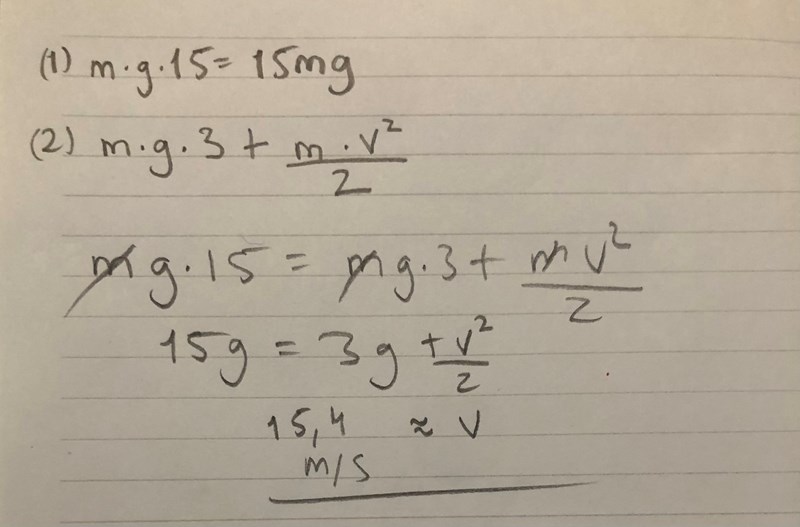 (1) m·g·15 = 15mg
(2) m·g·3 + m·v²/2
mg·15 = mg·3 + mv²/2
15g = 3g + v²/2
15,4 ≈ v
m/s